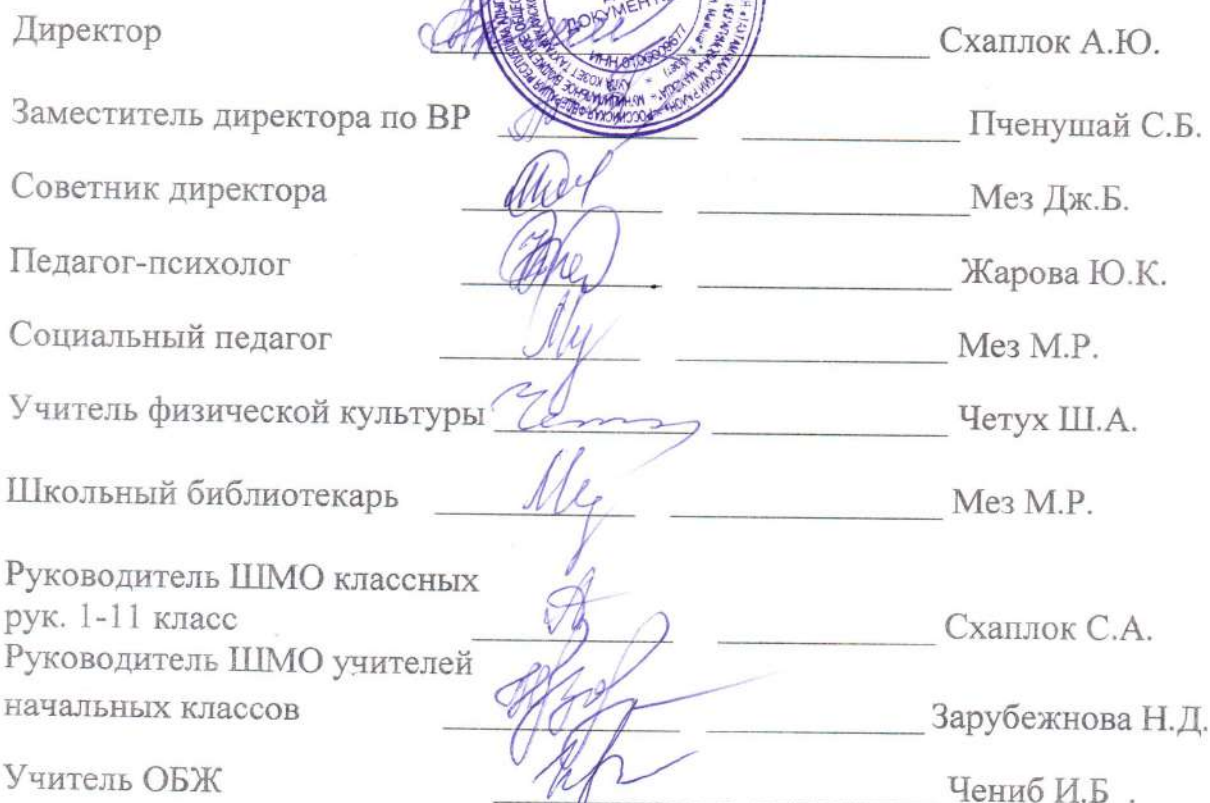 ДОКУМЕНТ
Директор Схаплок А.Ю.
Заместитель директора по ВР Пченушай С.Б.
Советник директора Мез Дж.Б.
Педагог-психолог Жарова Ю.К.
Социальный педагог Мез М.Р.
Учитель физической культуры Четух Ш.А.
Школьный библиотекарь Мез М.Р.
Руководитель ШМО классных
рук. 1-11 класс Схаплок С.А.
Руководитель ШМО учителей
начальных классов Зарубежнова Н.Д.
Учитель ОБЖ Чениб И.Б .